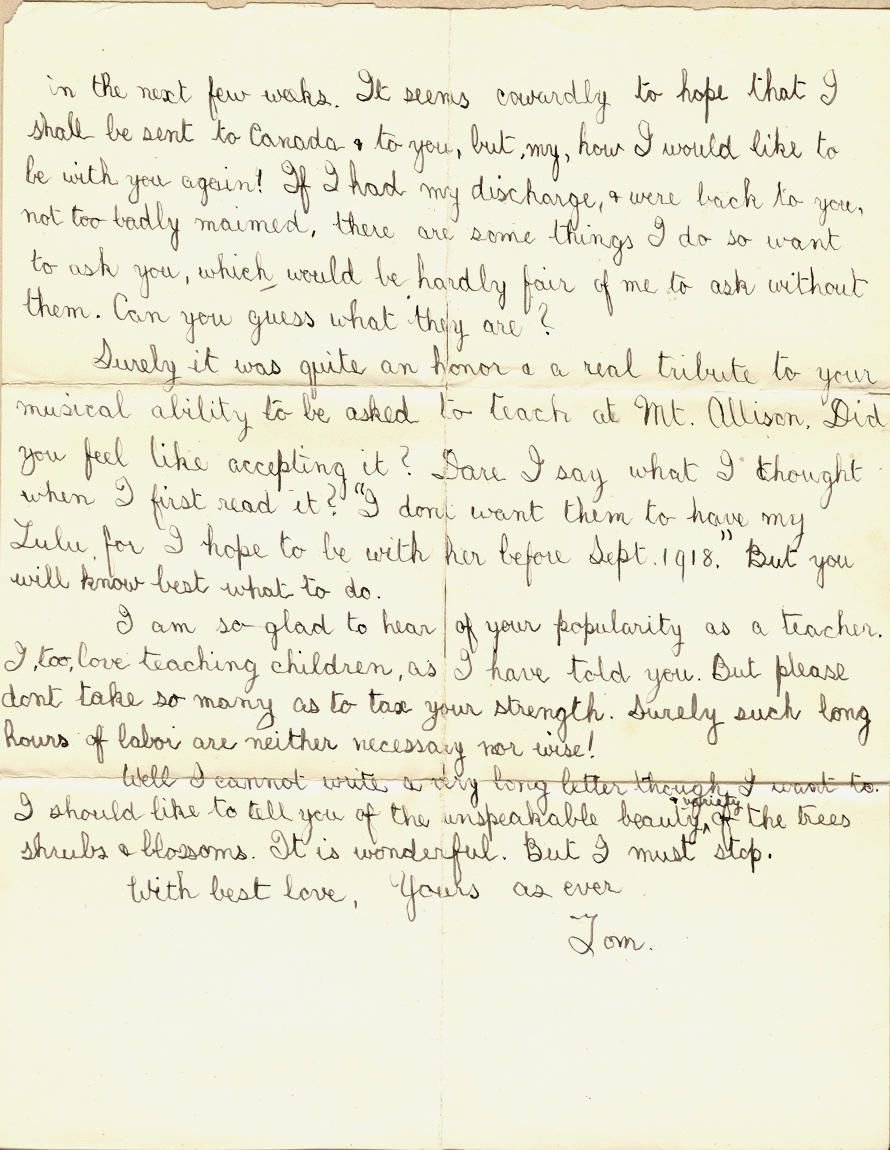 in the next few weeks. It seems cowardly to hope that I
shall be sent to Canada & to you, but, my, how I would like to
be with you again! If I had my discharge, & were back to you,
not too badly maimed, there are some things I do so want
to ask you, which would be hardly fair of me to ask without
them. Can you guess what they are?
Surely it was quite an honor & a real tribute to your
musical ability to be asked to teach at Mt. Allison. Did
you feel like accepting it? Dare I say what I thought
when I first read it? "I dont want them to have my
Lulu, for I hope to be with her before Sept. 1918." But you
will know best what to do.
I am so glad to hear of your popularity as a teacher.
I, too, love teaching children, as I have told you. But please
dont take so many as to tax your strength. Surely such long
hours of labor are neither necessary nor wise!
Well I cannot write a very long letter though I want to.
I should like to tell you of the unspeakable beauty & variety of the trees
shrubs & blossoms. It is wonderful. But I must stop.
With best love, Yours as ever
Tom.